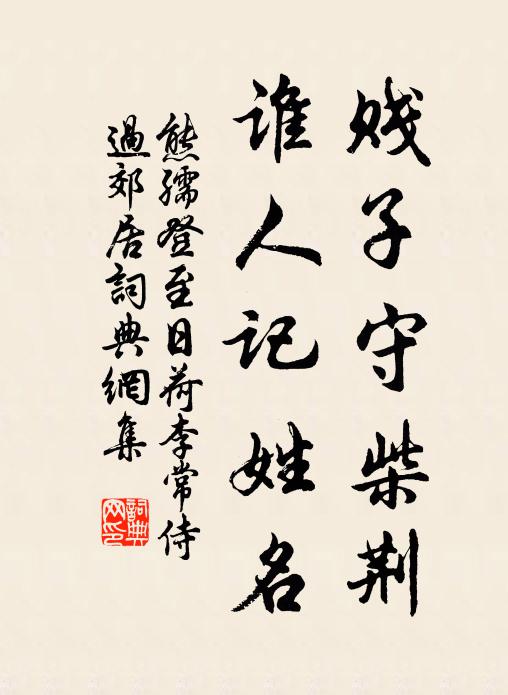 贱子守柴荆
谁人记姓名
熊孺登至日荷李常侍
過郊居詞典網集
詞典
网印